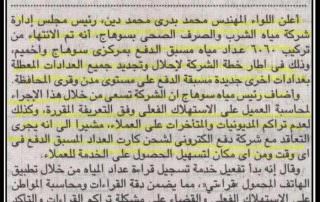 أعلن اللواء المهندس محمد بدرى محمد دين، رئيس مجلس إدارة
شركة مياه الشرب والصرف الصحى بسوهاج، أنه تم الانتهاء من
تركيب ٦٠٦٠ عداد مياه مسبق الدفع بمركزى سوهاج وأخميم،
وذلك فى إطار خطة الشركة لإحلال وتجديد جميع العدادات المعطلة
بعدادات أخرى جديدة مسبقة الدفع على مستوى مدن وقرى المحافظة
وأضاف رئيس مياه سوهاج أن الشركة تسعى من خلال هذا الإجراء
لمحاسبة العميل على الاستهلاك الفعلى وفق التعريفة المقررة، وكذلك
لعدم تراكم المديونيات والمتأخرات على العملاء، مشيرا الى انه يجرى
التعاقد مع شركة دفع الكترونى لشحن كارت العداد المسبق الدفع فى
أى وقت ومن أى مكان لتسهيل الحصول على الخدمة للعملاء.
وقال إنه بدأ تفعيل خدمة تسجيل قراءة عداد المياه من خلال تطبيق
الهاتف المحمول «قراءتي»، مما يضمن دقة القراءات ومحاسبة المواطن
على الاستهلاك الفعلى والقضاء على مشكلة تراكم القراءات والتأكد